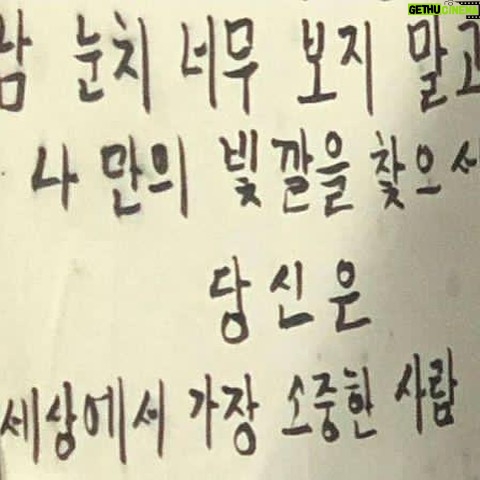 GETHUCINEMA
남 눈치 너무 보지 말고
나만의 빛깔을 찾으세
당신은
세상에서 가장 소중한 사람